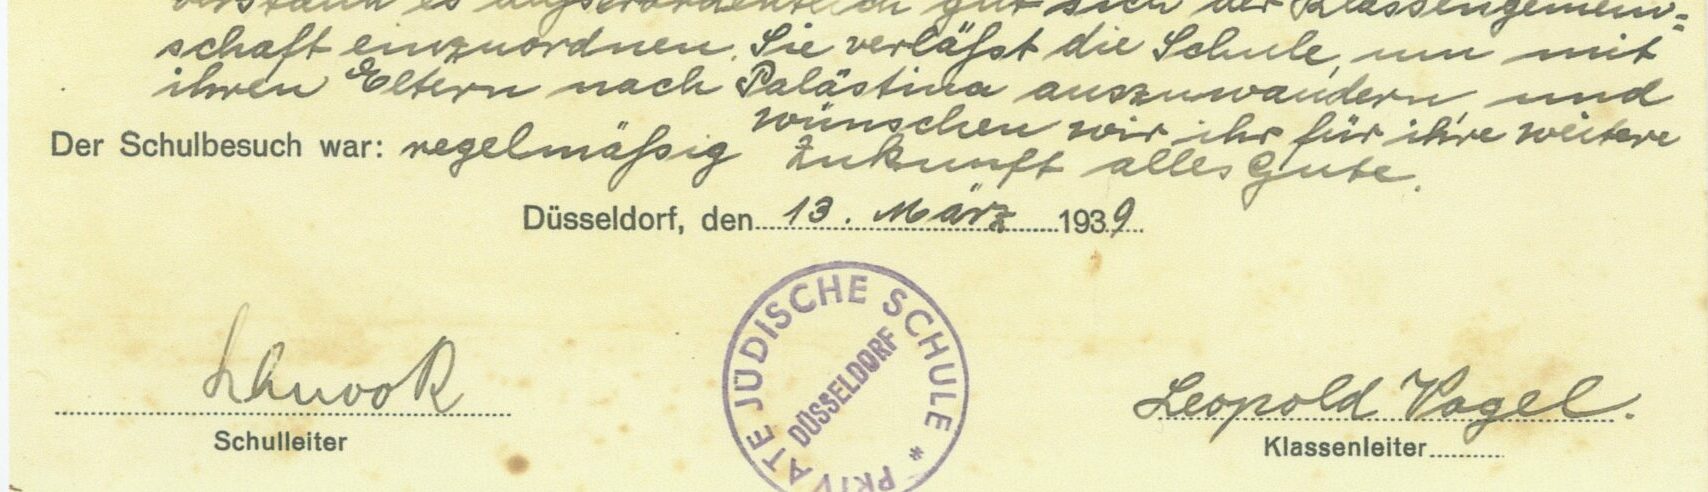 verstand es außerordentlich gut sich der Klassengemein-
schaft einzuordnen. Sie verläßt die Schule, um mit
ihren Eltern nach Palästina auszuwandern und
wünschen wir ihr für ihre weitere
Der Schulbesuch war: regelmäßig Zukunft alles Gute.
Düsseldorf, den 13. März 1939.
PRIVATE JÜDISCHE SCHULE *
DÜSSELDORF
Schulleiter
Leopold Vogel.
Klassenleiter